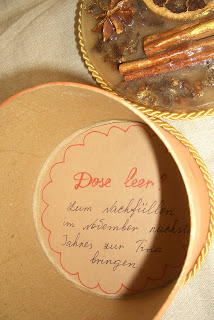 Dose leer?
Zum Nachfüllen
im November nächsten
Jahres zur Tina
bringen